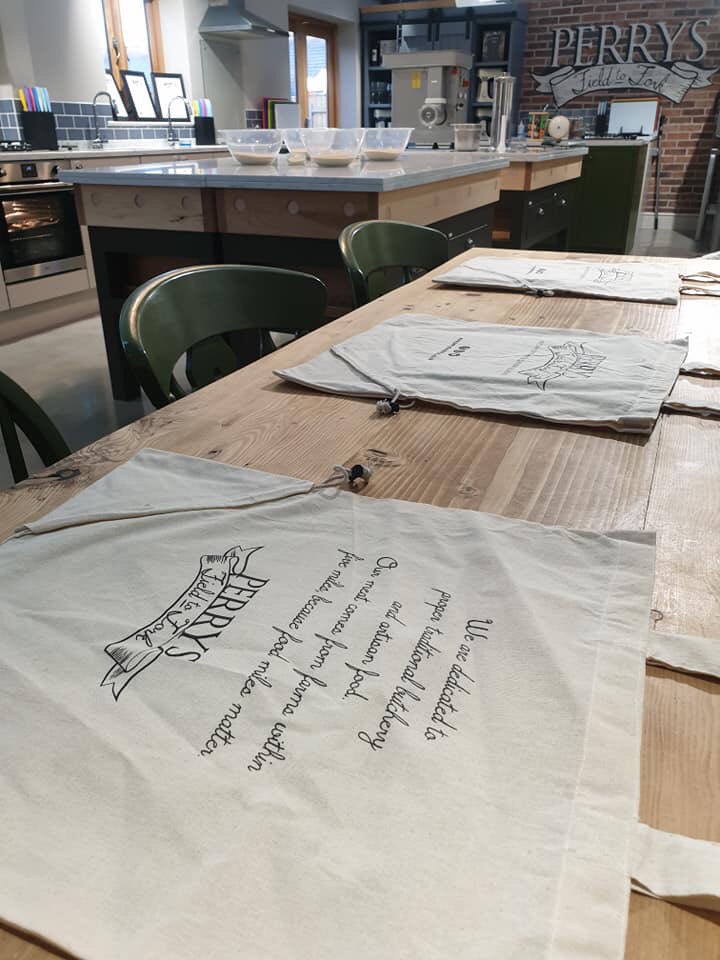 PERRYS
Field to Fork
PERRYS
Field to Fork
PERRYS
Field to Fork
We are dedicated to
proper traditional butchery
and artisan food.
Our meat comes from farms within
five miles, because food miles matter.